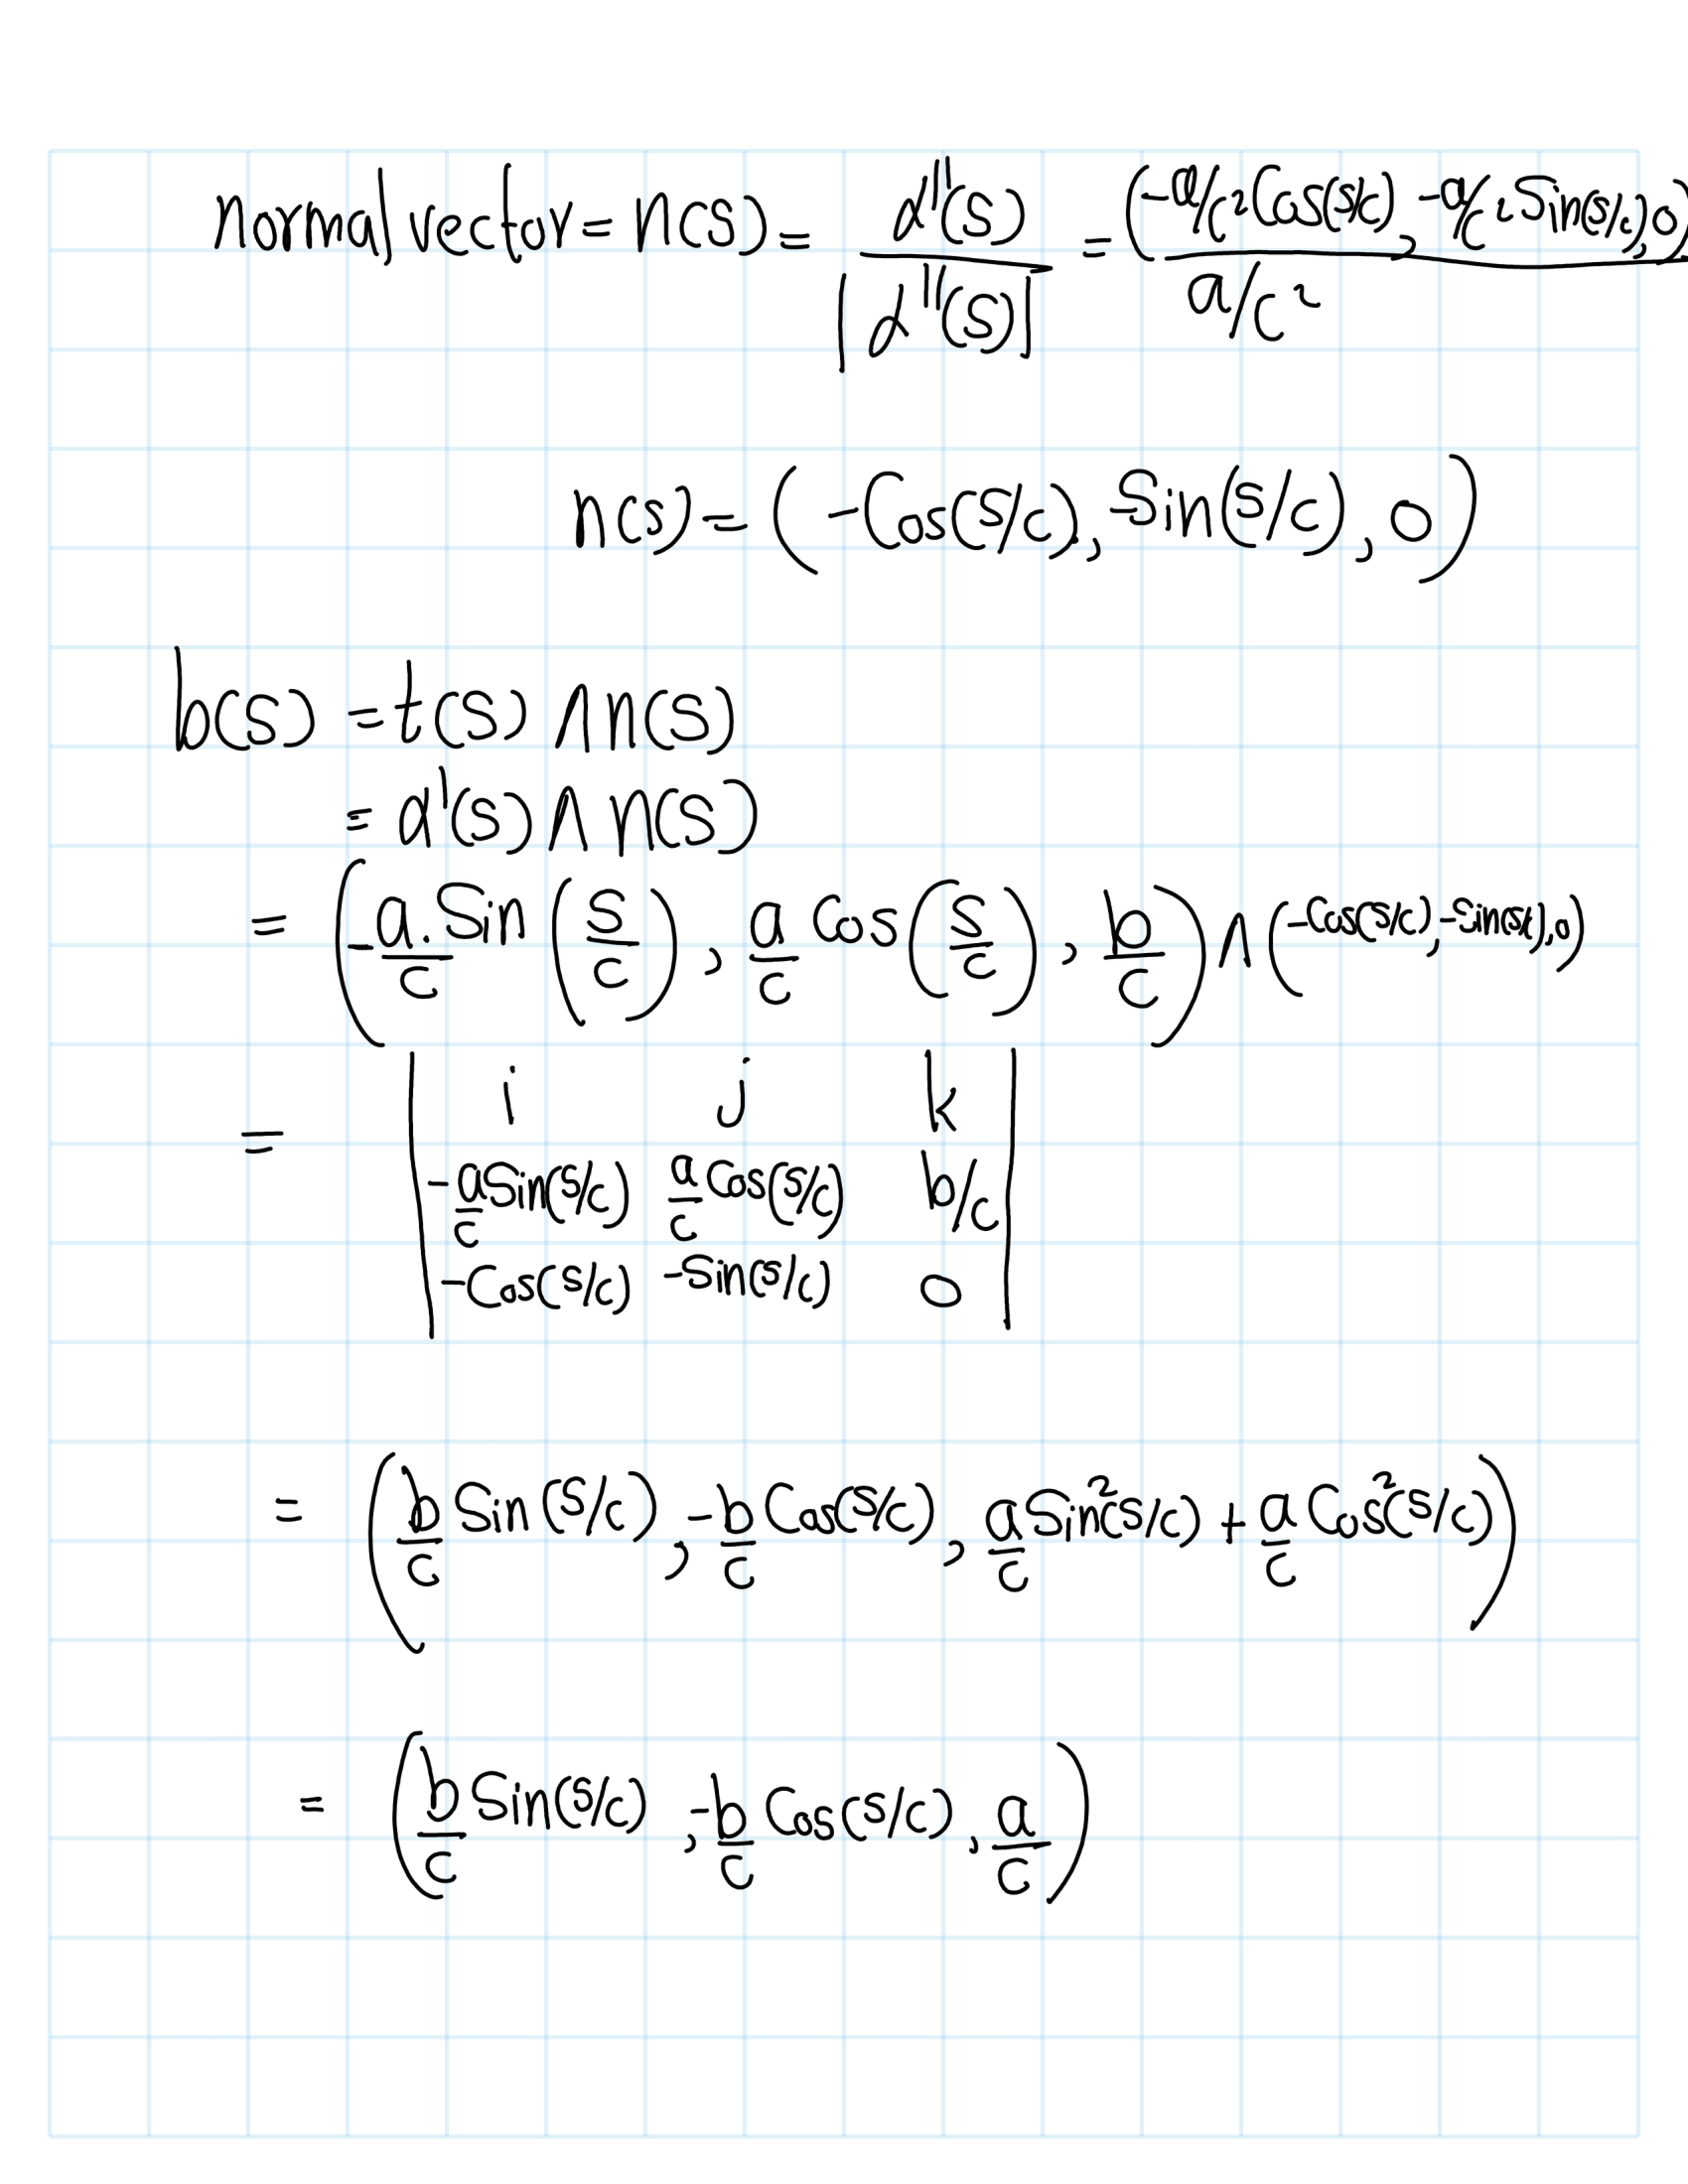 normal vector = n(s) = α''(s) / |α''(s)| = (-a/c² Cos(s/c), -a/c² Sin(s/c), 0) / a/c²
n(s) = (-Cos(s/c), -Sin(s/c), 0)
b(s) = t(s) ∧ n(s)
= α'(s) ∧ n(s)
= (-a/c . Sin(s/c), a/c Cos(s/c), b/c) ∧ (-Cos(s/c), -Sin(s/c), 0)
= | i j k |
| -a/c Sin(s/c) a/c Cos(s/c) b/c |
| -Cos(s/c) -Sin(s/c) 0 |
= (b/c Sin(s/c), -b/c Cos(s/c), a/c Sin²(s/c) + a/c Cos²(s/c))
= (b/c Sin(s/c), -b/c Cos(s/c), a/c)